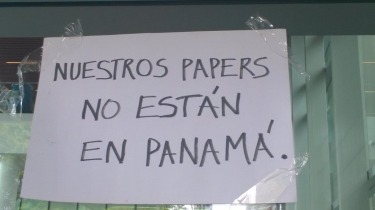 NUESTROS PAPERS
NO ESTÁN
EN PANAMÁ.